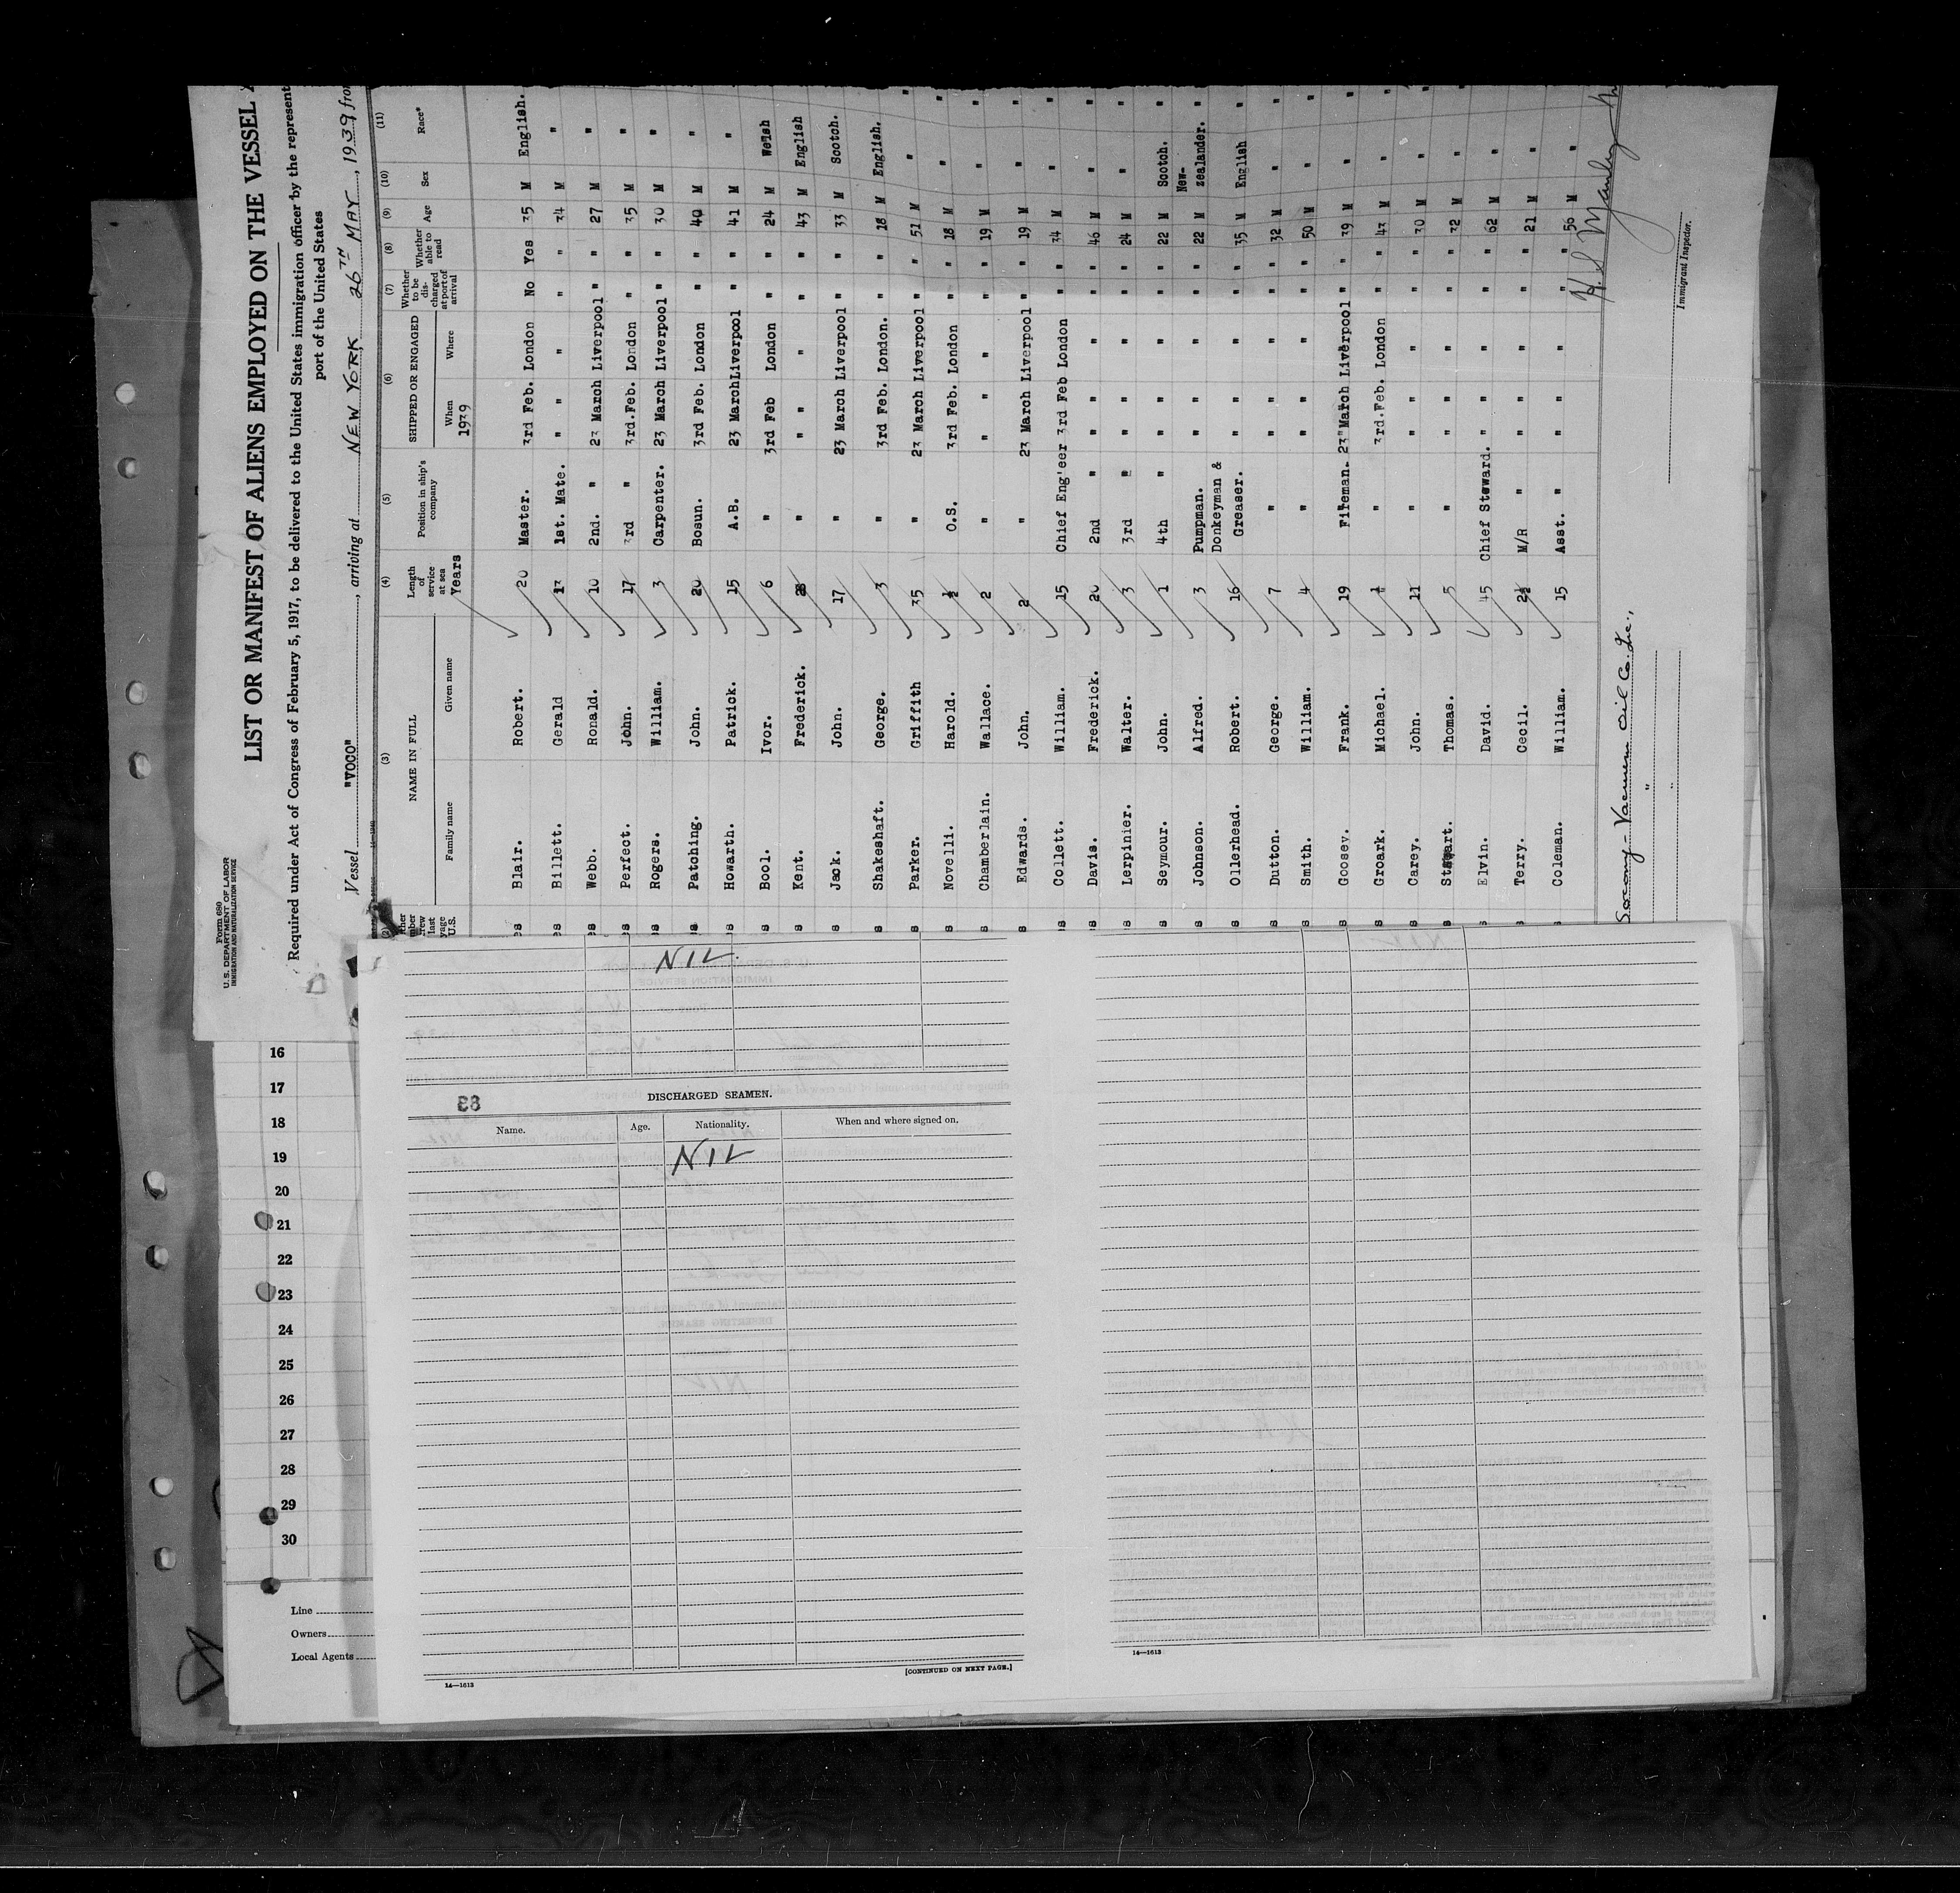 Form 680
U. S. DEPARTMENT OF LABOR
IMMIGRATION AND NATURALIZATION SERVICE
LIST OR MANIFEST OF ALIENS EMPLOYED ON THE VESSEL
Required under Act of Congress of February 5, 1917, to be delivered to the United States immigration officer by the represent
port of the United States
Vessel "VOCO", arriving at NEW YORK 26TH MAY, 1939 from
(3) (4) (5) (6) (7) (8) (9) (10) (11)
NAME IN FULL Length of service at sea Position in ship's company SHIPPED OR ENGAGED Whether to be discharged at port of arrival Whether able to read Age Sex Race*
Family name Given name Years When Where
1939
Blair. Robert. 20 Master. 3rd Feb. London No Yes 35 M English.
Billett. Gerald 1st. Mate. " " " " " 34 M "
Webb. Ronald. 10 2nd. " 23 March Liverpool " " 27 M "
Perfect. John. 17 3rd " 3rd.Feb. London " " 35 M "
Rogers. William. 3 Carpenter. 23 March Liverpool " " 30 M "
Patching. John. 20 Bosun. 3rd Feb. London " " 40 M "
Howarth. Patrick. 15 A.B. 23 March Liverpool " " 41 M "
Bool. Ivor. 6 " 3rd Feb London " " 24 M Welsh
Kent. Frederick. " " " " " " 43 M English
Jack. John. 17 " 23 March Liverpool " " 33 M Scotch.
Shakeshaft. George. 3 " 3rd Feb. London. " " 18 M English.
Parker. Griffith 35 " 23 March Liverpool " " 51 M "
Novelli. Harold. ½ O.S. 3rd Feb. London " " 18 M "
Chamberlain. Wallace. 2 " " " " " " 19 M "
Edwards. John. 2 " 23 March Liverpool " " 19 M "
Collett. William. 15 Chief Eng'eer 3rd Feb London " " 34 M "
Davis. Frederick. 20 2nd " " " " " " 46 M "
Lerpinier. Walter. 3 3rd " " " " " " 24 M "
Seymour. John. 1 4th " " " " " " 22 M Scotch.
Johnson. Alfred. 3 Pumpman. " " " " " 22 M New-zealander.
Ollerhead. Robert. 16 Donkeyman & Greaser. " " " " " 35 M English
Dutton. George. 7 " " " " " " 32 M "
Smith. William. 4 " " " " " " 50 M "
Goosey. Frank. 19 Fireman. 23 March Liverpool " " 39 M "
Groark. Michael. 1 " 3rd.Feb. London " " 43 M "
Carey. John. 11 " " " " " " 30 M "
Stewart. Thomas. 5 " " " " " " 32 M "
Elvin. David. 45 Chief Steward. " " " " " 62 M "
Terry. Cecil. 2½ M/R " " " " " " 21 M "
Coleman. William. 15 Asst. " " " " " " 56 M "
Socony-Vacuum Oil Co. Inc.,
"
"
Immigrant Inspector.
NIL.
83
DISCHARGED SEAMEN.
Name. Age. Nationality. When and where signed on.
NIL
[CONTINUED ON NEXT PAGE.]
14—1613
14—1613
16
17
18
19
20
21
22
23
24
25
26
27
28
29
30
Line
Owners
Local Agents